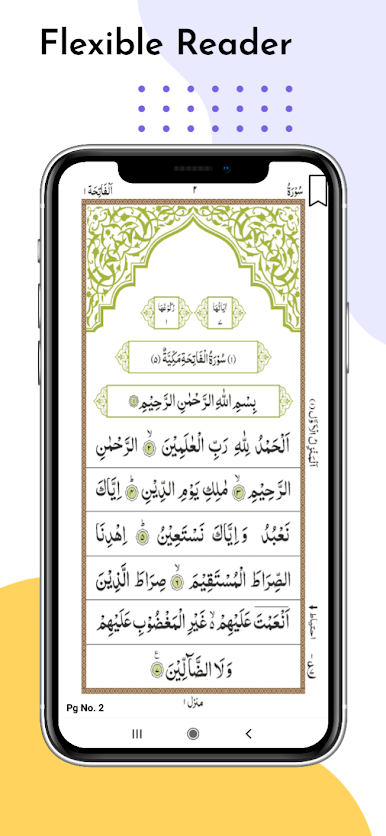 Flexible Reader
سُوْرَةُ ٢ اَلْفَاتِحَة ١
اٰيَاتُهَا ٧ رُكُوْعُهَا ١
(١) سُوْرَةُ الْفَاتِحَةِ مَكِّيَّةٌ (٥)
بِسْمِ اللّٰهِ الرَّحْمٰنِ الرَّحِيْمِ ١
اَلْحَمْدُ لِلّٰهِ رَبِّ الْعٰلَمِيْنَ ۙ ٢ الرَّحْمٰنِ
الرَّحِيْمِ ۙ ٣ مٰلِكِ يَوْمِ الدِّيْنِ ؕ ٤ اِيَّاكَ
نَعْبُدُ وَ اِيَّاكَ نَسْتَعِيْنُ ؕ ٥ اِهْدِنَا
الصِّرَاطَ الْمُسْتَقِيْمَ ۙ ٦ صِرَاطَ الَّذِيْنَ
اَنْعَمْتَ عَلَيْهِمْ ۙ۬ غَيْرِ الْمَغْضُوْبِ عَلَيْهِمْ
وَلَا الضَّآلِّيْنَ ۧ ٧
منزل ١
Pg No. 2